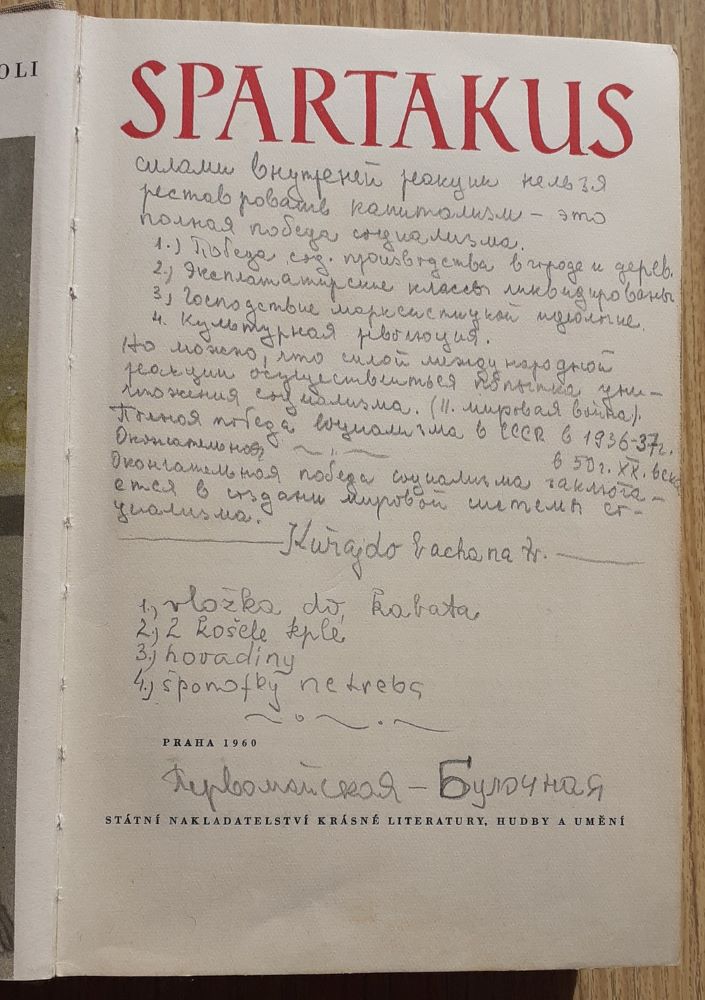 OLI
SPARTAKUS
силами внутреней реакции нельзя
реставровать капитализм – это
полная победа социализма.
1.) Победа соц. производства в городе и дерев.
2.) Эксплататирские классы ликвидированы.
3.) Господствие марксистицкой идеологие.
4. Культурная революция.
Но можно, что силой международной
реакции осуществиться попытка уни-
чтожения социализма. (II. мировая война).
Полная победа социализма в СССР в 1936-37г.
Окончательная в 50 г. XX. века
Окончательная победа социализма заключа-
ется в создани мировой системы со-
циализма.
Kuřajdo
1.) vložka do kabata
2.) 2 košele
3.) hovadiny
4.) netreba
PRAHA 1960
Первомайская – Булочная
STÁTNÍ NAKLADATELSTVÍ KRÁSNÉ LITERATURY, HUDBY A UMĚNÍ